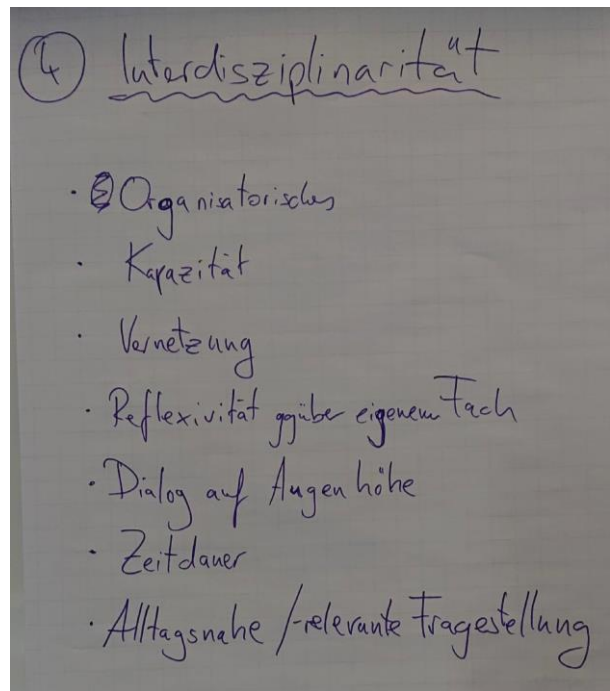 4 Interdisziplinarität
· Organisatorisches
· Kapazität
· Vernetzung
· Reflexivität ggüber eigenem Fach
· Dialog auf Augenhöhe
· Zeitdauer
· Alltagsnahe /-relevante Fragestellung